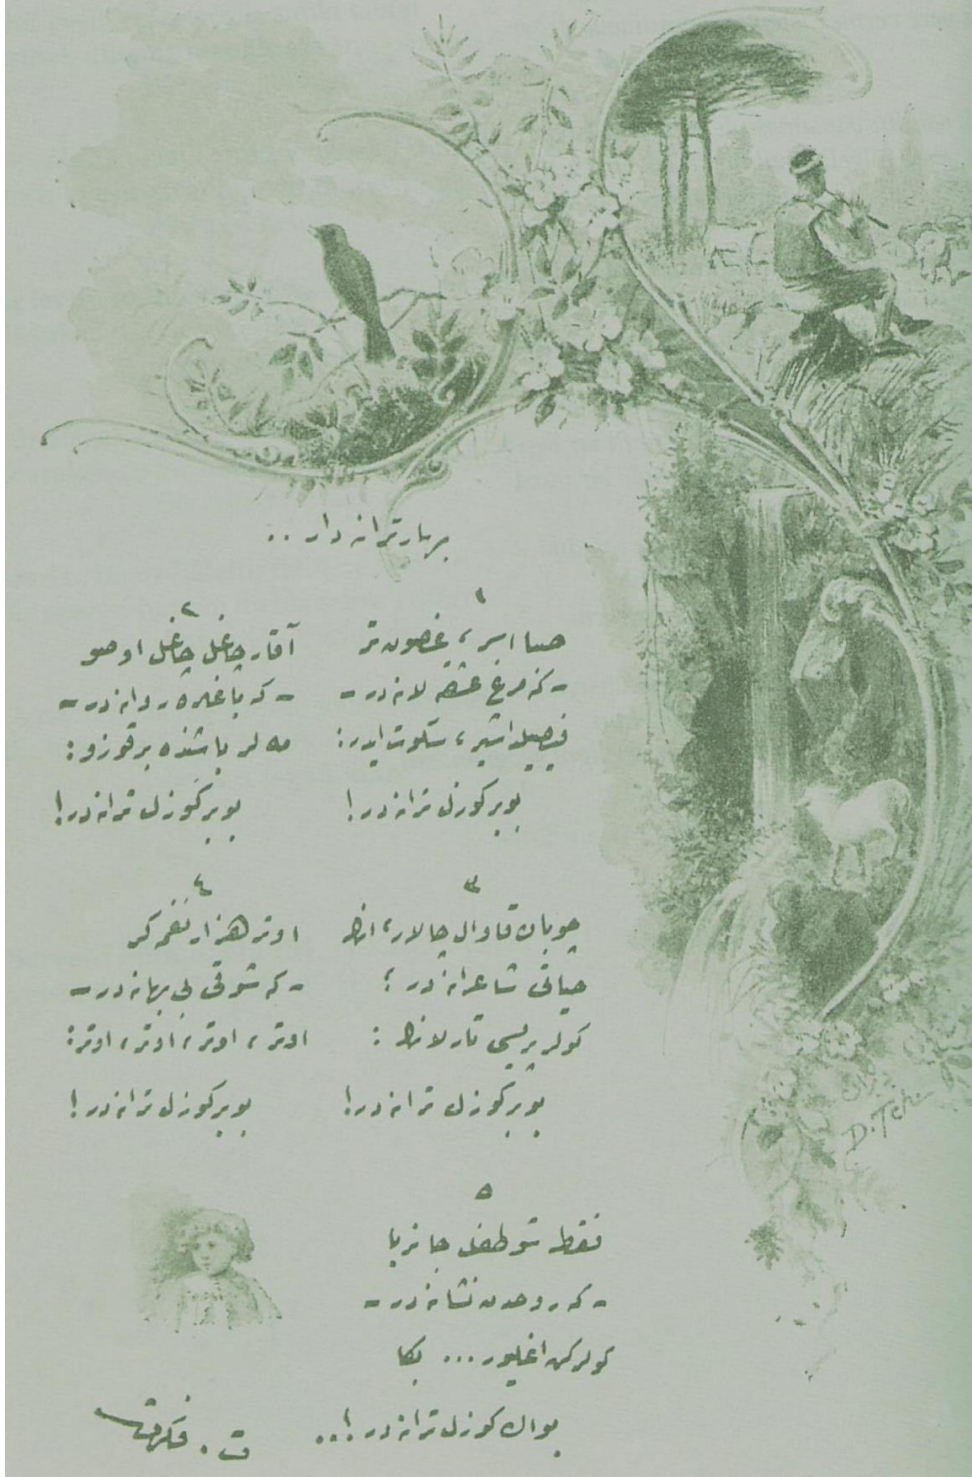 بهار ترانه دار ..
١
صبا اسر، غصون تر
- كه مرغ عشقه لانه در -
فيصيلداشير، سكوت ايدر:
بو بر كوزل ترانه در!
٢
آقار چاغل چاغل او صو
- كه باغلره روانه در -
مه لر باشنده بر قوزو:
بو بر كوزل ترانه در!
٣
چوبان قاوال چالار، انك
حياتى شاعرانه در؛
كولر پريسى تارلانك :
بو بر كوزل ترانه در!
٤
اوتر هزار نغمه كر
- كه شوقى بى بهانه در -
اوتر، اوتر، اوتر، اوتر:
بو بر كوزل ترانه در!
٥
فقط شو طفل جانربا
- كه روحدن نشانه در -
كولركن اغليور ... بكا
بو اك كوزل ترانه در !..
ت . فكرت
D. Tch